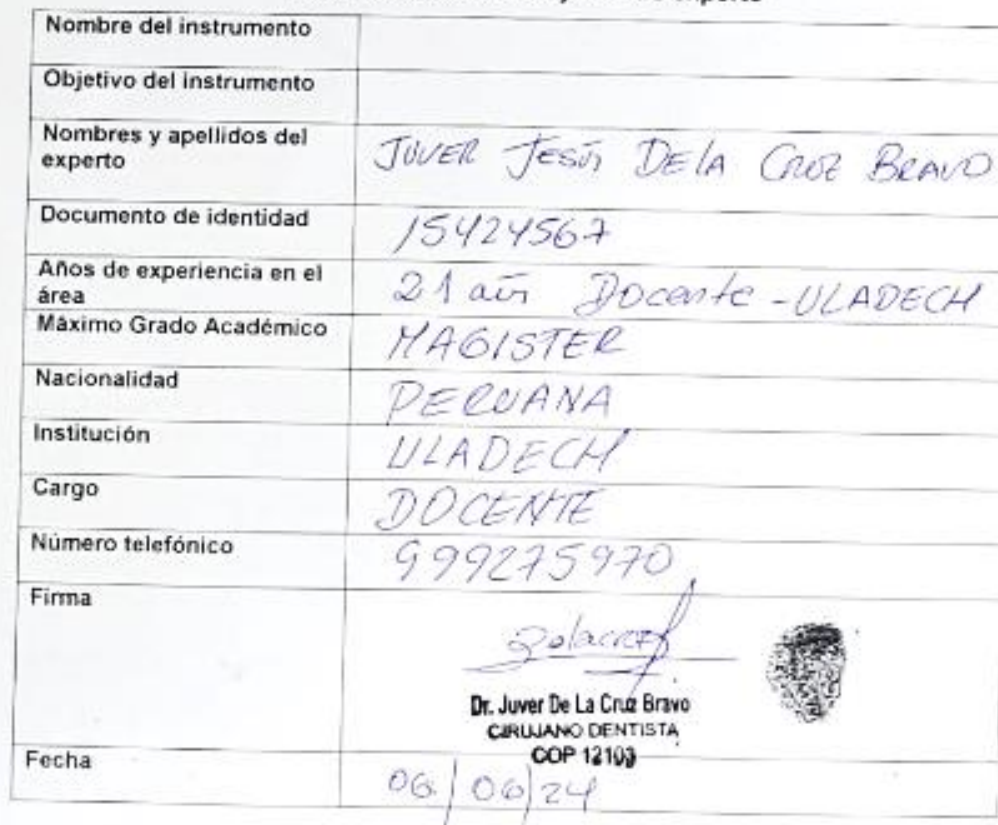 Nombre del instrumento
Objetivo del instrumento
Nombres y apellidos del
experto
JUVER JESÚS DE LA CRUZ BRAVO
Documento de identidad
15424567
Años de experiencia en el
área
21 añs Docente - ULADECH
Máximo Grado Académico
MAGISTER
Nacionalidad
PERUANA
Institución
ULADECH
Cargo
DOCENTE
Número telefónico
999275970
Firma
Dr. Juver De La Cruz Bravo
CIRUJANO DENTISTA
COP 12103
Fecha
06/06/24